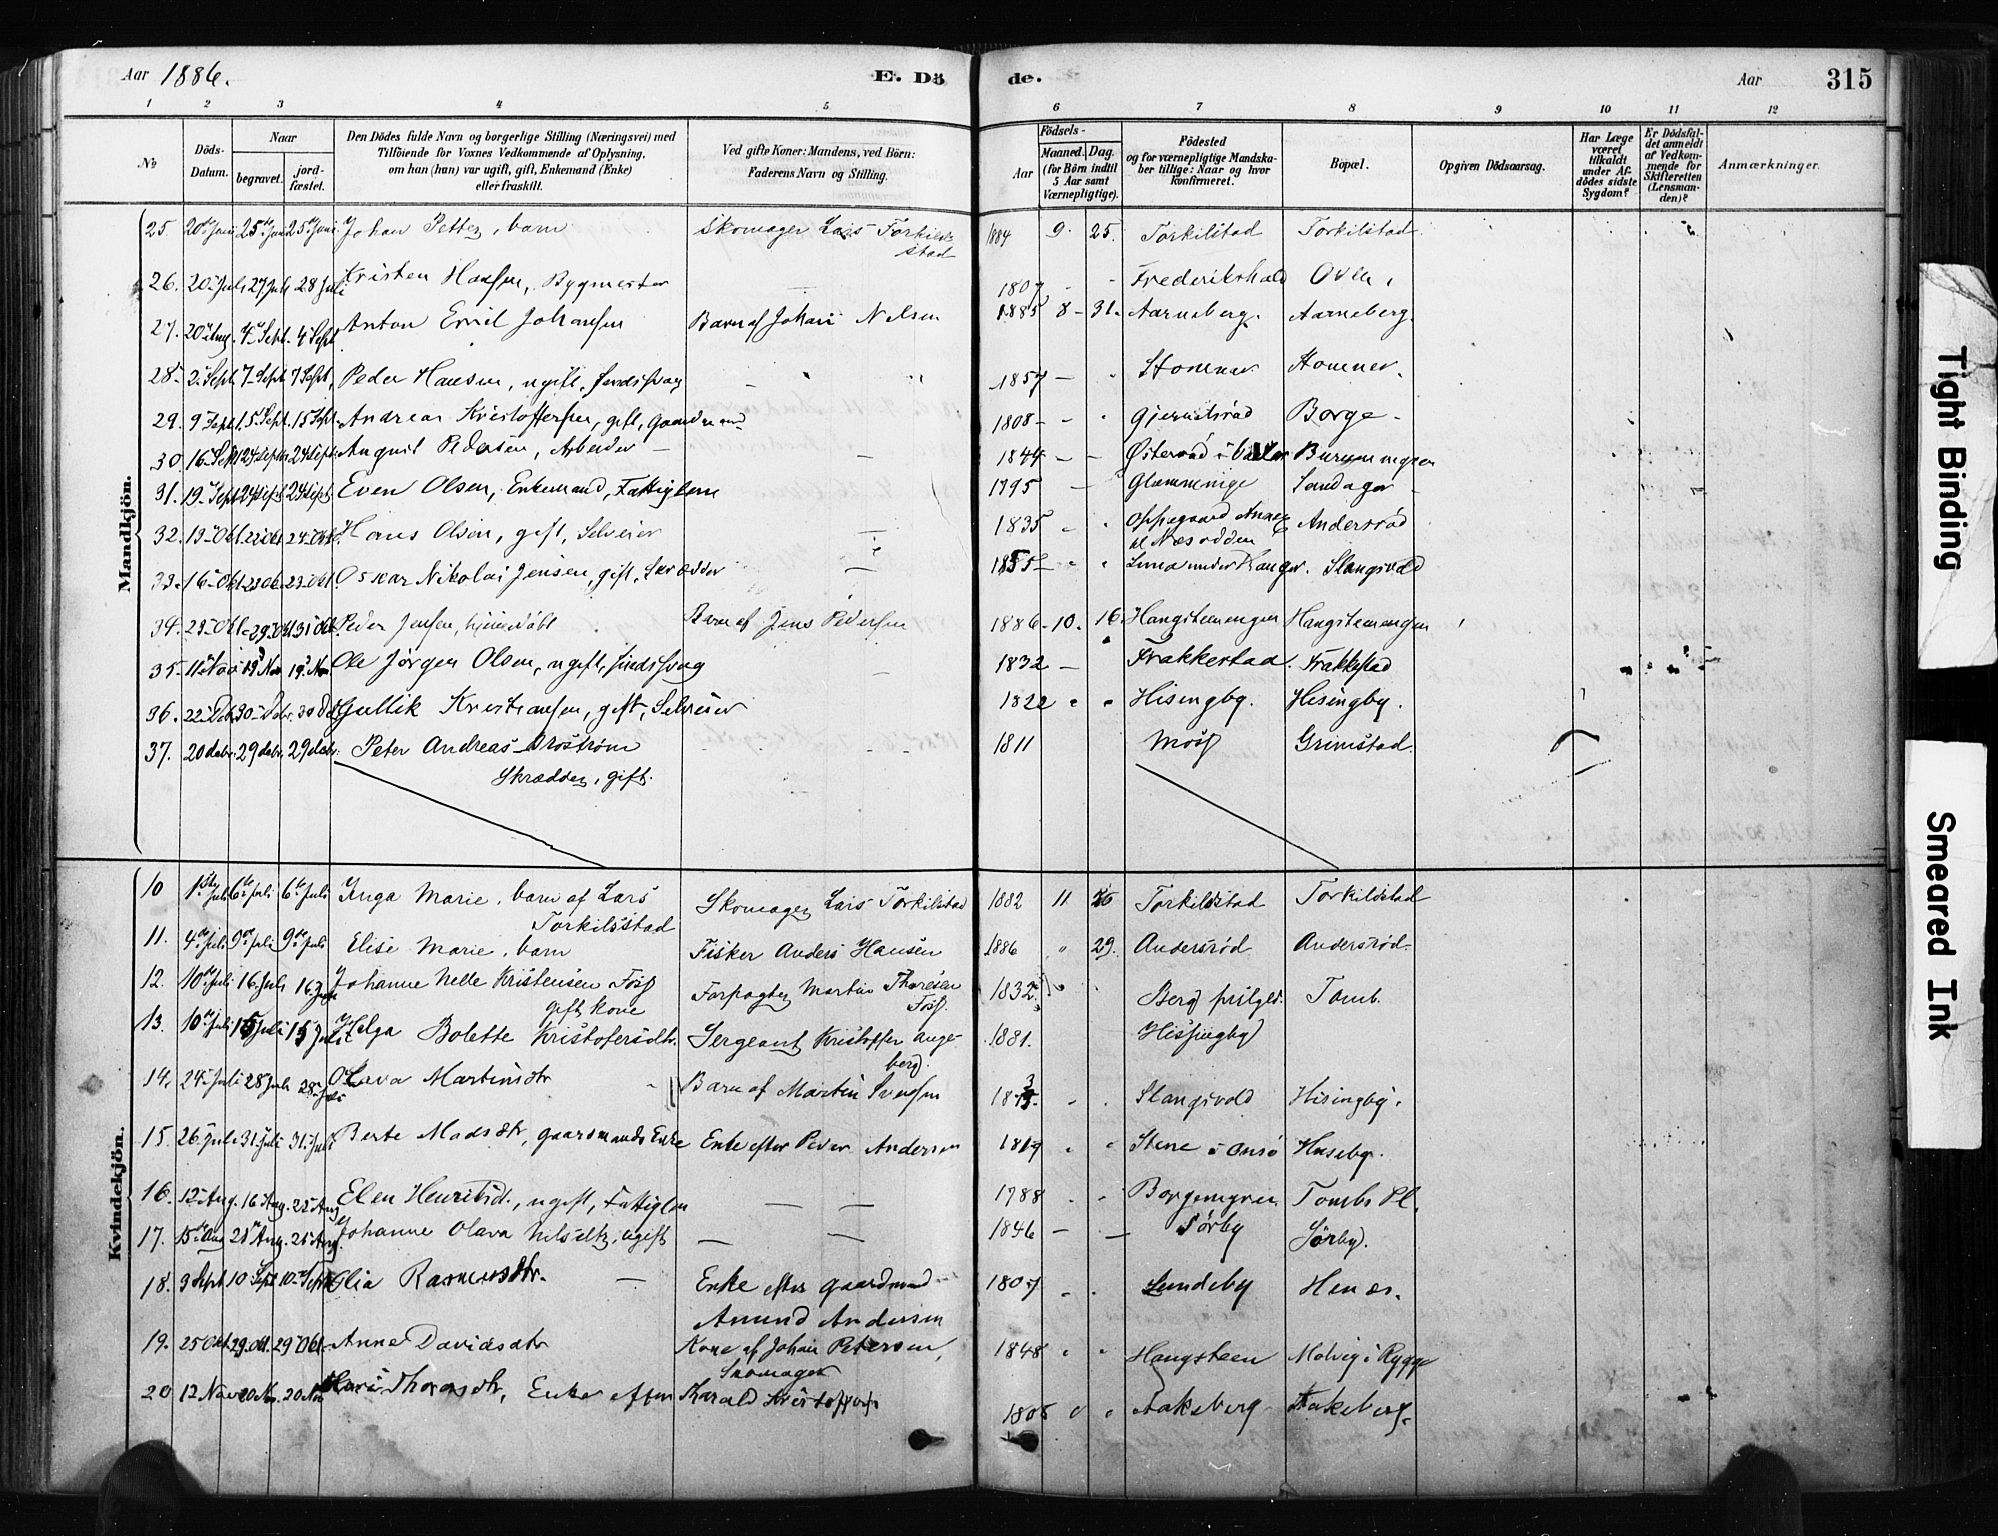 Aar 1886.
E. Dö
de.
Aar
315
1 2 3 4 5 6 7 8 9 10 11 12
No
Döds-
Datum.
Naar
begravet.
jord-
fæstet.
Den Dödes fulde Navn og borgerlige Stilling (Næringsvei) med
Tilföiende for Voxnes Vedkommende af Oplysning,
om han (hun) var ugift, gift, Enkemand (Enke)
eller fraskilt.
Ved gifte Koner: Mandens, ved Börn:
Faderens Navn og Stilling.
Födsels-
Aar
Maaned.
Dag.
(for Börn indtil
5 Aar samt
Værnepligtige).
Födested
og for værnepligtige Mandska-
ber tillige: Naar og hvor
Konfirmeret.
Bopæl.
Opgiven Dödsaarsag.
Har Læge
været
tilkaldt
under Af-
dödes sidste
Sygdom?
Er Dödsfal-
det anmeldt
af Vedkom-
mende for
Skifteretten
(Lensman-
den)?
Anmærkninger.
Mandkjön.
25. 20de Juni 25de Juni 25de Juni Johan Petter, barn Skomager Lars Torkild- 1884 9. 25. Torkilstad Torkilstad
stad
26. 20 Juli 27 Juli 28 Juli Kristen Hansen, Bygmester — 1807 Frederikshald Oven,
27. 20 Aug. 4 Sept. 4 Sept Anton Emil Johansen Barn af Johan Nilsen 1885 8 - 31. Aarneberg. Aarneberg.
28. 2 Sept. 7 Sept. 7 Sept. Peder Hansen, ugift, sindssvag — 1857 — Stomner Stomner.
29. 9 Sept. 15 Sept. 15 Sept. Andreas Kristoffersen, gift, Gaardmand 1808 - Gjernetsrød Borge -
30. 16 Sept 24 Septr 24 Septr. August Pedersen, Arbeider — — 1844 — — Østerød i Vaaler
31. 19 Sept 24 Sept 24 Sept. Even Olsen, Enkemand, Fattiglem 1795 — Glemminge Sandager
32. 13 Okt. 22 Okt 24 Okt. Hans Olsen, gift, Selveier — 1835 Oppegaard Annex Andersrød
til Næsodden
33. 16 Okt. 23 Ok. 23 Okt. Oskar Nikolai Jensen, gift, Skrædder — 1855 Slangsvold
34. 23 Okt. 29 Okt 31 Okt. Peder Jensen, hjemmedøbt Barn af Jens Pedersen 1886 - 10. 16. Hangstenengen Hangstenengen
35. 11 Nov 19 Nov 19 Nov Ole Jörgen Olsen, ugift, sindssvag — 1832 — Frakkestad. Frakkestad
36. 22 Deb. 30 Debr. 30 Deb Gullik Kristiansen, gift, Selveier 1822 Hisingby. Hisingby.
37. 20 debr. 29 debr. 29 debr. Peter Andreas 1811 Moss Grimstad.
Skrædder, gift.
Kvindekjön.
10 1ste Juli 6te Juli 6te Juli Inga Marie, barn af Lars Skomager Lars Torkilstad 1882 11 Torkildstad Torkildstad
Torkilsstad
11. 4de Juli 9de Juli 9de Juli Elise Marie, barn Fisker Anders Hansen 1886 29. Andersrød Andersrød
12. 10de Juli 16 Juli 16 Juli Johanne Nelle Kristensen Foss Forpagter Martin Thoresen 1832 Berg prstgld. Tomb.
gift Kone Foss.
13. 10de Juli 15 Juli 15 Juli Helga Bolette Kristofersdtr. Sergeant Kristoffer Ange- 1881. Hissingby
berg.
14. 24 Juli 28 Juli 28 Juli Olava Martinsdtr Barn af Martin Svensen Slangsvold Hisingby.
15. 26 Juli 31 Juli 31 Juli Berte Madsdtr, gaardmands Enke Enke efter Peder Andersen 1819 Stene i Onsø Huseby.
16. 12 Aug. 16 Aug. 22 Aug Elen Henriksd., ugift, Fattiglem — — 1788 Borgemyren Tombs Pl.
17. 15de Aug 21 Aug. 21 Aug. Johanne Olava Nilsdtr, ugift — — 1846 — — Sørby Sørby.
18. 3 Sept. 10 Sept 10 Sept Olia Rasmusdtr. — Enke efter gaardmand 1807 Lundeby Henæs.
Amund Andersen
19. 25 Okt. 29 Okt. 29 Okt. Anne Davidsdtr Kone af Johan Petersen, 1848 Hangsteen Molvig i Rygge
Skomager
20 12 Nov 20 Nov. 20 Nov Thorsdtr, Enke efter Harald Kristoffersen 1805 Aakeberg Aakeberg.
Tight Binding
Smeared Ink